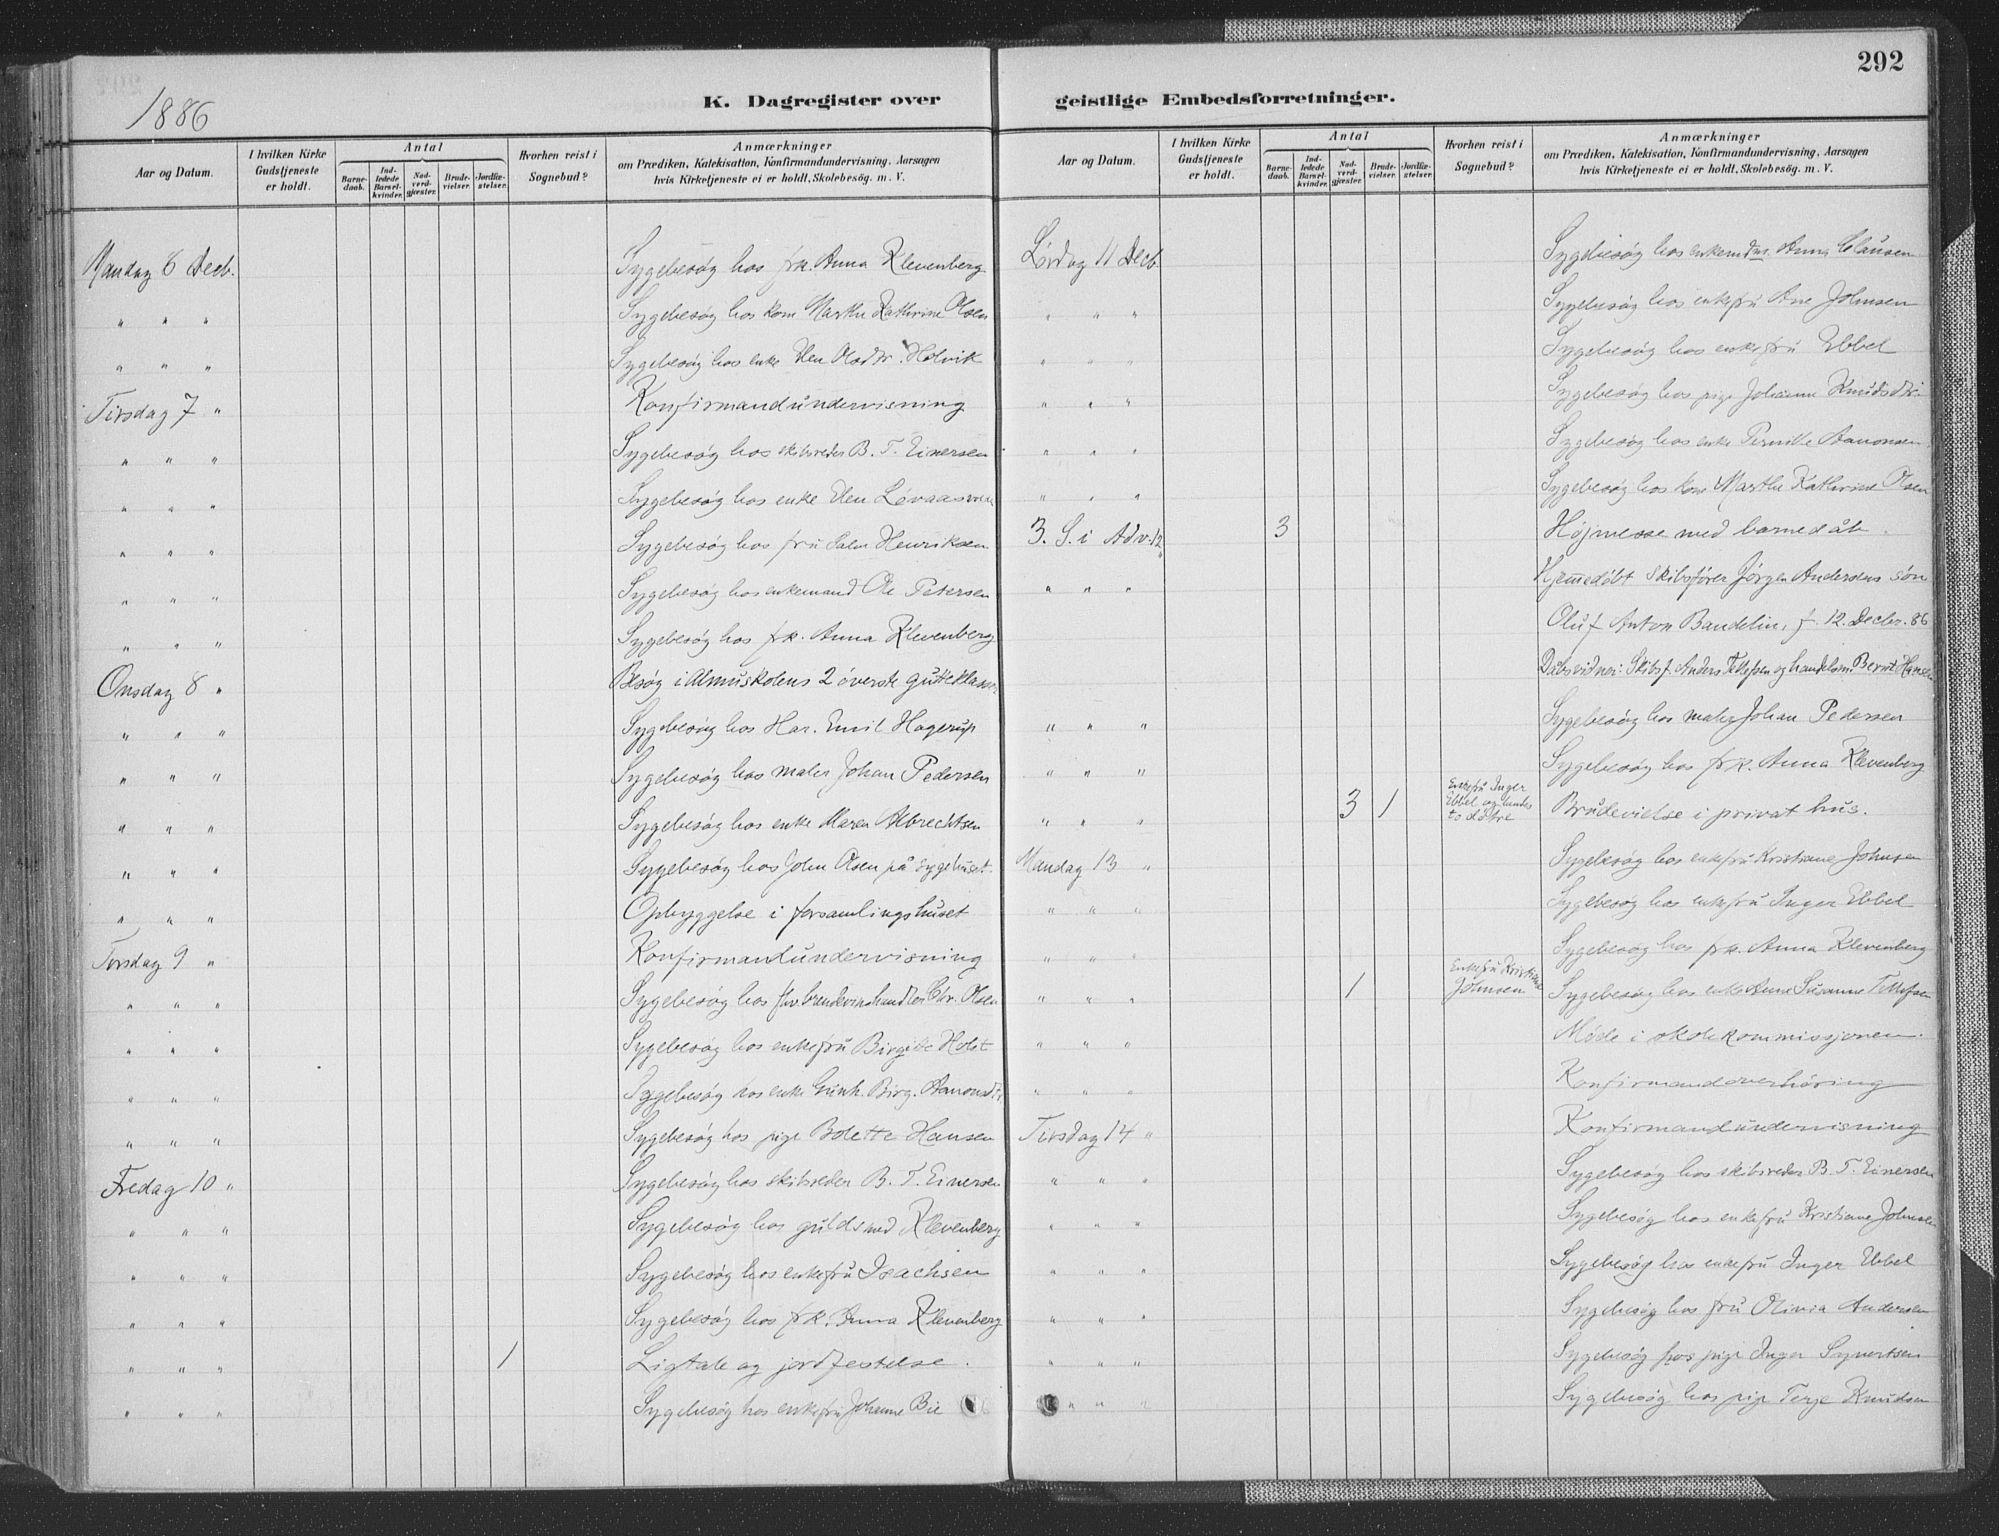 292
1886
K. Dagregister over geistlige Embedsforretninger.
Aar og Datum.
I hvilken Kirke Gudstjeneste er holdt.
Antal
Barnedaab.
Indledede Barselkvinder.
Nadverdgjæster.
Brudevielser.
Jordfæstelser.
Hvorhen reist i Sognebud?
Anmærkninger
om Prædiken, Katekisation, Konfirmandundervisning, Aarsagen
hvis Kirketjeneste ei er holdt, Skolebesög. m. V.
Mandag 6 Decb. Sygebesøg hos frk. Anna Klevenberg
" " " Sygebesøg hos kone Marthe Kathrine Olsen
" " " Sygebesøg hos enke Olsdtr. Hølvik
Tirsdag 7 " Konfirmandundervisning
" " " Sygebesøg hos skibsreder B. T. Einersen
" " " Sygebesøg hos enke
" " " Sygebesøg hos fru Henriksen
" " " Sygebesøg hos enkemand Ole Petersen
" " " Sygebesøg hos frk. Anna Klevenberg
Onsdag 8 " Besøg i Almuskolens 2 øverste gutteklasser
" " " Sygebesøg hos Har. Emil Hagerup
" " " Sygebesøg hos maler Johan Pedersen
" " " Sygebesøg hos enke Maren Albrechtsen
" " " Sygebesøg hos John Olsen på sygehuset.
" " " Opbyggelse i forsamlingshuset
Torsdag 9 " Konfirmandundervisning
" " " Sygebesøg hos fhv. brændevinshandler Chr. Olsen
" " " Sygebesøg hos enkefru Birgitte Holst
" " " Sygebesøg hos enke Gunh. Birg. Aanonsdtr
" " " Sygebesøg hos pige Bolette Hansen
Fredag 10 " Sygebesøg hos skibsreder B. T. Einersen
" " " Sygebesøg hos guldsmed Klevenberg
" " " Sygebesøg hos enkefru Isachsen
" " " Sygebesøg hos frk. Anna Klevenberg
" " " 1 Ligtale og jordfestelse.
" " " Sygebesøg hos enkefru Johanne Bie
Aar og Datum.
I hvilken Kirke Gudstjeneste er holdt.
Antal
Barnedaab.
Indledede Barselkvinder.
Nadverdgjæster.
Brudevielser.
Jordfæstelser.
Hvorhen reist i Sognebud?
Anmærkninger
om Prædiken, Katekisation, Konfirmandundervisning, Aarsagen
hvis Kirketjeneste ei er holdt, Skolebesög. m. V.
Lørdag 11 Decb Sygebesøg hos Anna Clausen
" " " Sygebesøg hos enkefru Ane Johnsen
" " " Sygebesøg hos enkefru Ebbel
" " " Sygebesøg hos pige Johanne Knudsdtr.
" " " Sygebesøg hos enke Pernille Aanonsen
" " " Sygebesøg hos kone Marthe Kathrine Olsen
3. S. i Adv. 12 " 3 Højmesse med barnedåb.
" " " Hjemmedøbt skibsfører Jørgen Andersens søn
Oluf Anton Bandelin, f. 12. Decbr. 86
Dåbsvidner: Skibsf. Anders Tellefsen og handelsm. Bernt Hansen
" " " Sygebesøg hos maler Johan Pedersen
" " " Sygebesøg hos frk. Anna Klevenberg
" " " 3 1 Enkefru Inger Ebbel og hendes to døtre Brudevielse i privat hus.
Mandag 13 " Sygebesøg hos enkefru Kristiane Johnsen
" " " Sygebesøg hos enkefru Inger Ebbel
" " " Sygebesøg hos frk. Anna Klevenberg
" " " 1 Enkefru Kristiane Johnsen Sygebesøg hos enke Anne Susanne Tellefsen
" " " Møde i skolekommissjonen.
" " " Konfirmandoverhøring
Tirsdag 14 " Konfirmandundervisning
" " " Sygebesøg hos skibsreder B. T. Einersen
" " " Sygebesøg hos enkefru Kristiane Johnsen
" " " Sygebesøg hos enkefru Inger Ebbel
" " " Sygebesøg hos fru Olivia Andersen
" " " Sygebesøg hos pige Inger Syvertsen
" " " Sygebesøg hos pige Terje Knudsen